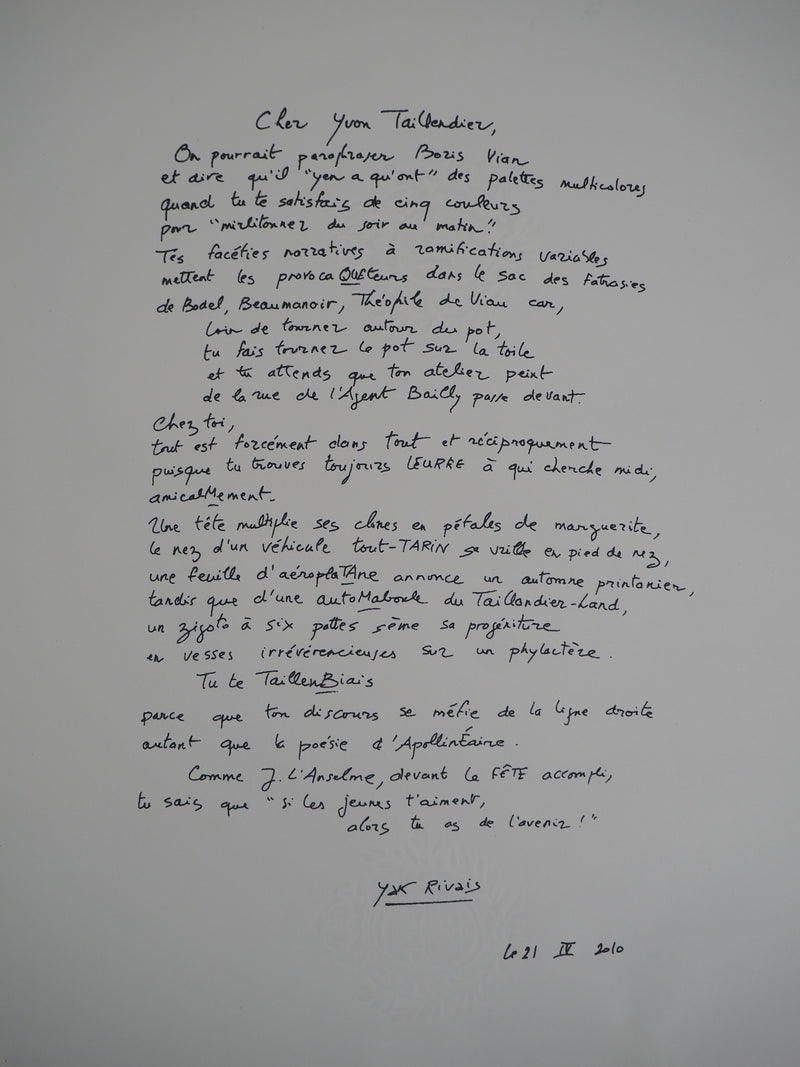 Cher Yvon Taillandier,
On pourrait paraphraser Boris Vian
et dire qu'il "yen a qu'ont" des palettes multicolores
quand tu te satisfais de cinq couleurs
pour "mirlitonner du soir au matin!"
Tes facéties narratives à ramifications variables
mettent les provocaQUEteurs dans le sac des fatrasies
de Bodel, Beaumanoir, Théophile de Viau car,
loin de tourner autour du pot,
tu fais tourner le pot sur la toile
et tu attends que ton atelier peint
de la rue de l'Agent Bailly passe devant.
Chez toi,
tout est forcément dans tout et réciproquement
puisque tu trouves toujours LEURRE à qui cherche midi,
amicalMement.
Une tête multiplie ses clones en pétales de marguerite,
le nez d'un véhicule tout-TARIN se vrille en pied de nez,
une feuille d'aéroplaTAne annonce un automne printanier,
tandis que d'une autoMaboule du Taillandier-Land,
un zigoto à six pattes sème sa progéniture
en vesses irrévérencieuses sur un phylactère.
Tu te TaillenBiais
parce que ton discours se méfie de la ligne droite
autant que la poésie d'ApollinÉaire.
Comme J. L'Anselme, devant le FÊTE accompli,
tu sais que "si les jeunes t'aiment,
alors tu as de l'avenir!"
Yak Rivais
le 21 IV 2010